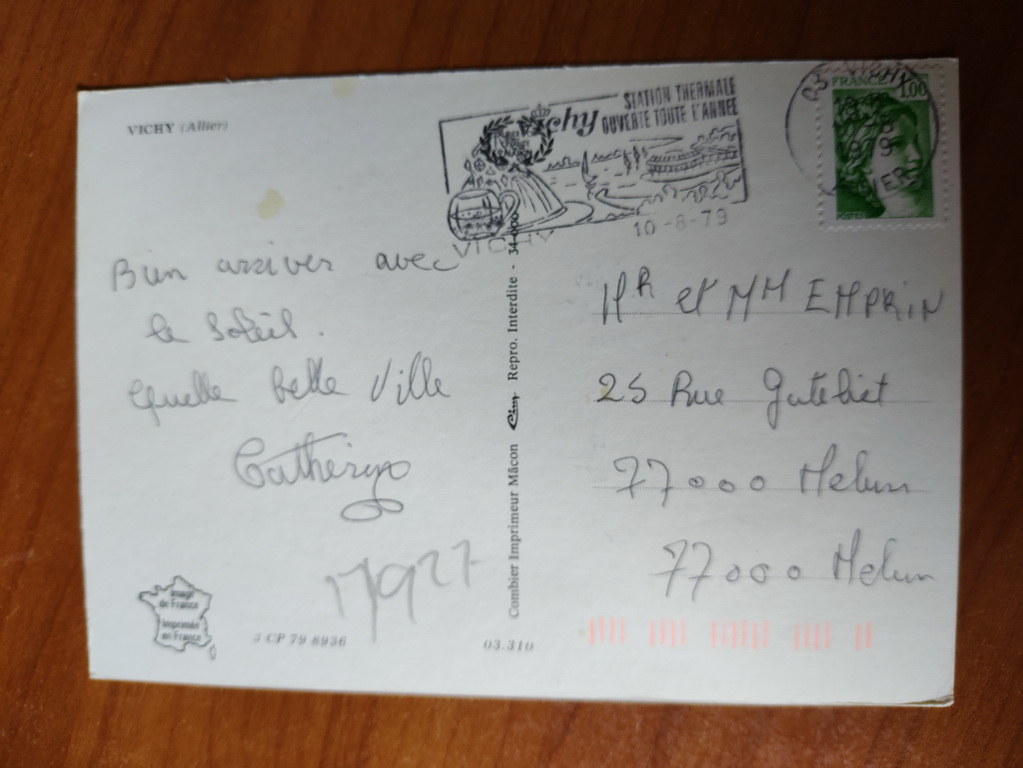 VICHY (Allier)
Vichy
STATION THERMALE
OUVERTE TOUTE L'ANNÉE
VICHY
10-8-79
FRANCE
1.00
POSTES
Bien arriver avec
le soleil.
Quelle belle Ville
Catherine
17927
Mr et MM EMPRIN
25 Rue
77000 Melun
77000 Melun
Combier Imprimeur Mâcon Cim Repro. Interdite -
Image
de France
imprimée
en France
3 CP 79 8936
03.310